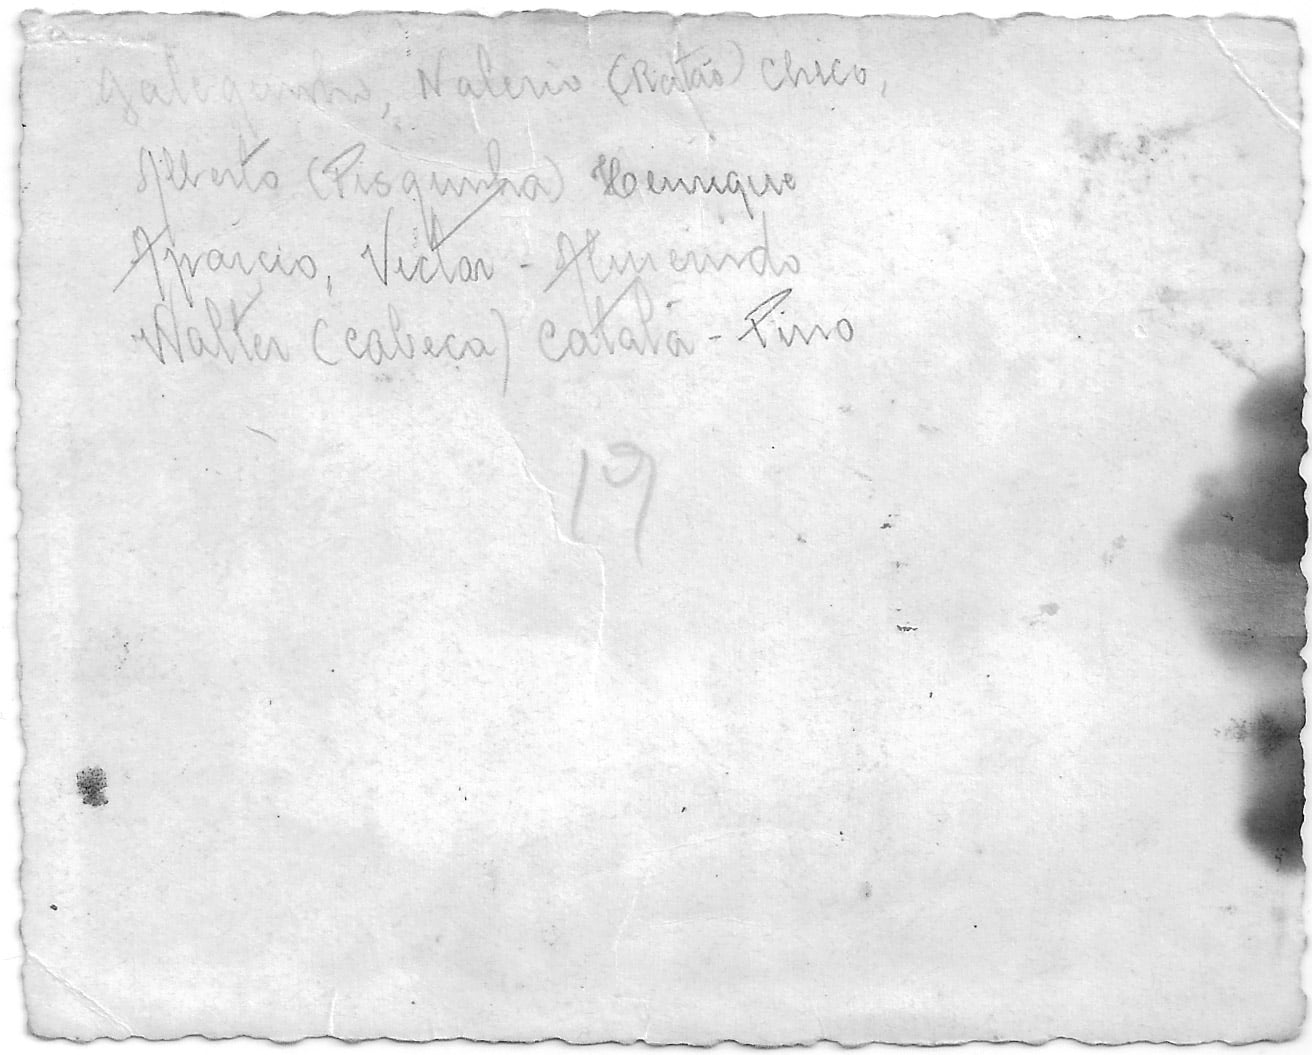 Galeguinho, Valerio (Ratão) Chico,
Alberto (Pisquinha) Henrique
Aparcio, Victor - Almerindo
Walter (cabeca) Catalá - Pirro
19